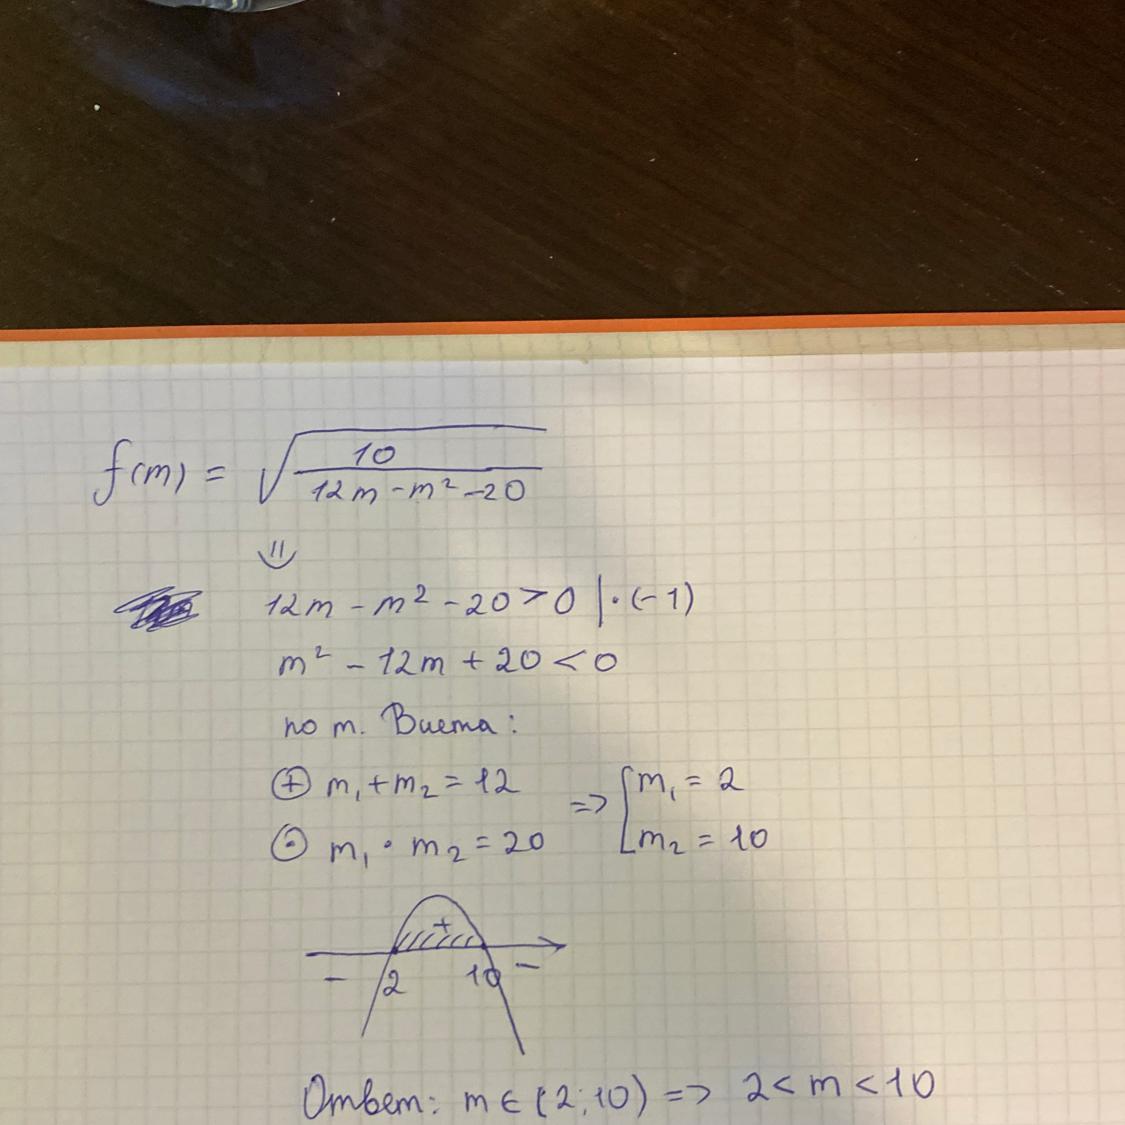 f(m) = √(10 / (12m - m² - 20))
⇓
12m - m² - 20 > 0 | · (-1)
m² - 12m + 20 < 0
по т. Виета:
⊕ m₁ + m₂ = 12
⊙ m₁ · m₂ = 20 => [ m₁ = 2
m₂ = 10
+
- 2 10 -
Ответ: m ∈ (2; 10) => 2 < m < 10